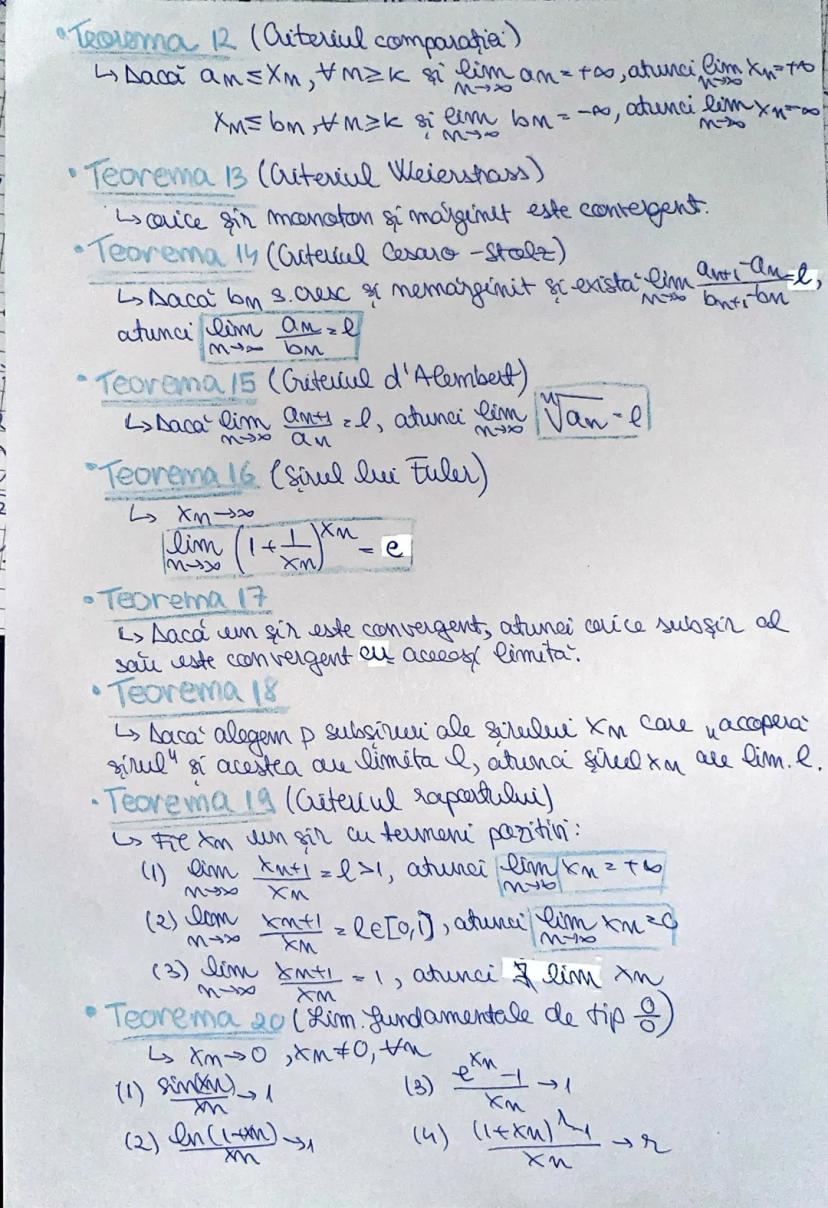 • Teorema 12 (Criteriul comparației)
↳ Dacă an ≤ xn, ∀n ≥ k și lim n→∞ an = +∞, atunci lim n→∞ xn = +∞
xn ≤ bn, ∀n ≥ k și lim n→∞ bn = -∞, atunci lim n→∞ xn = -∞
• Teorema 13 (Criteriul Weierstrass)
↳ orice șir monoton și mărginit este convergent.
• Teorema 14 (Criteriul Cesaro - Stolz)
↳ Dacă bn s. cresc și nemărginit și există lim n→∞ (an+1 - an)/(bn+1 - bn) = l,
atunci lim n→∞ an/bn = l
• Teorema 15 (Criteriul d'Alembert)
↳ Dacă lim n→∞ an+1/an = l, atunci lim n→∞ ⁿ√an = l
• Teorema 16 (Șirul lui Euler)
↳ xn → ∞
lim n→∞ (1 + 1/xn)^xn = e
• Teorema 17
↳ Dacă un șir este convergent, atunci orice subșir al
său este convergent cu aceeași limită.
• Teorema 18
↳ Dacă alegem p subșiruri ale șirului xn care „accoperă
șirul" și acestea au limita l, atunci șirul xn are lim. l.
• Teorema 19 (Criteriul raportului)
↳ Fie xn un șir cu termeni pozitivi:
(1) lim n→∞ xn+1/xn = l > 1, atunci lim n→∞ xn = +∞
(2) lim n→∞ xn+1/xn = l ∈ [0,1), atunci lim n→∞ xn = 0
(3) lim n→∞ xn+1/xn = 1, atunci ∄ lim xn
• Teorema 20 (Lim. fundamentale de tip 0/0)
↳ xn → 0, xn ≠ 0, ∀n
(1) sin(xn)/xn → 1 (3) (e^xn - 1)/xn → 1
(2) ln(1+xn)/xn → 1 (4) ((1+xn)^r - 1)/xn → r